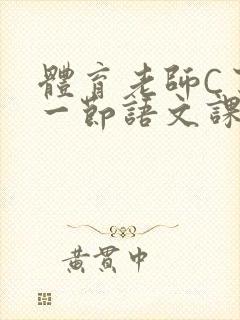 體育老師C
一節語文課
黃貫中